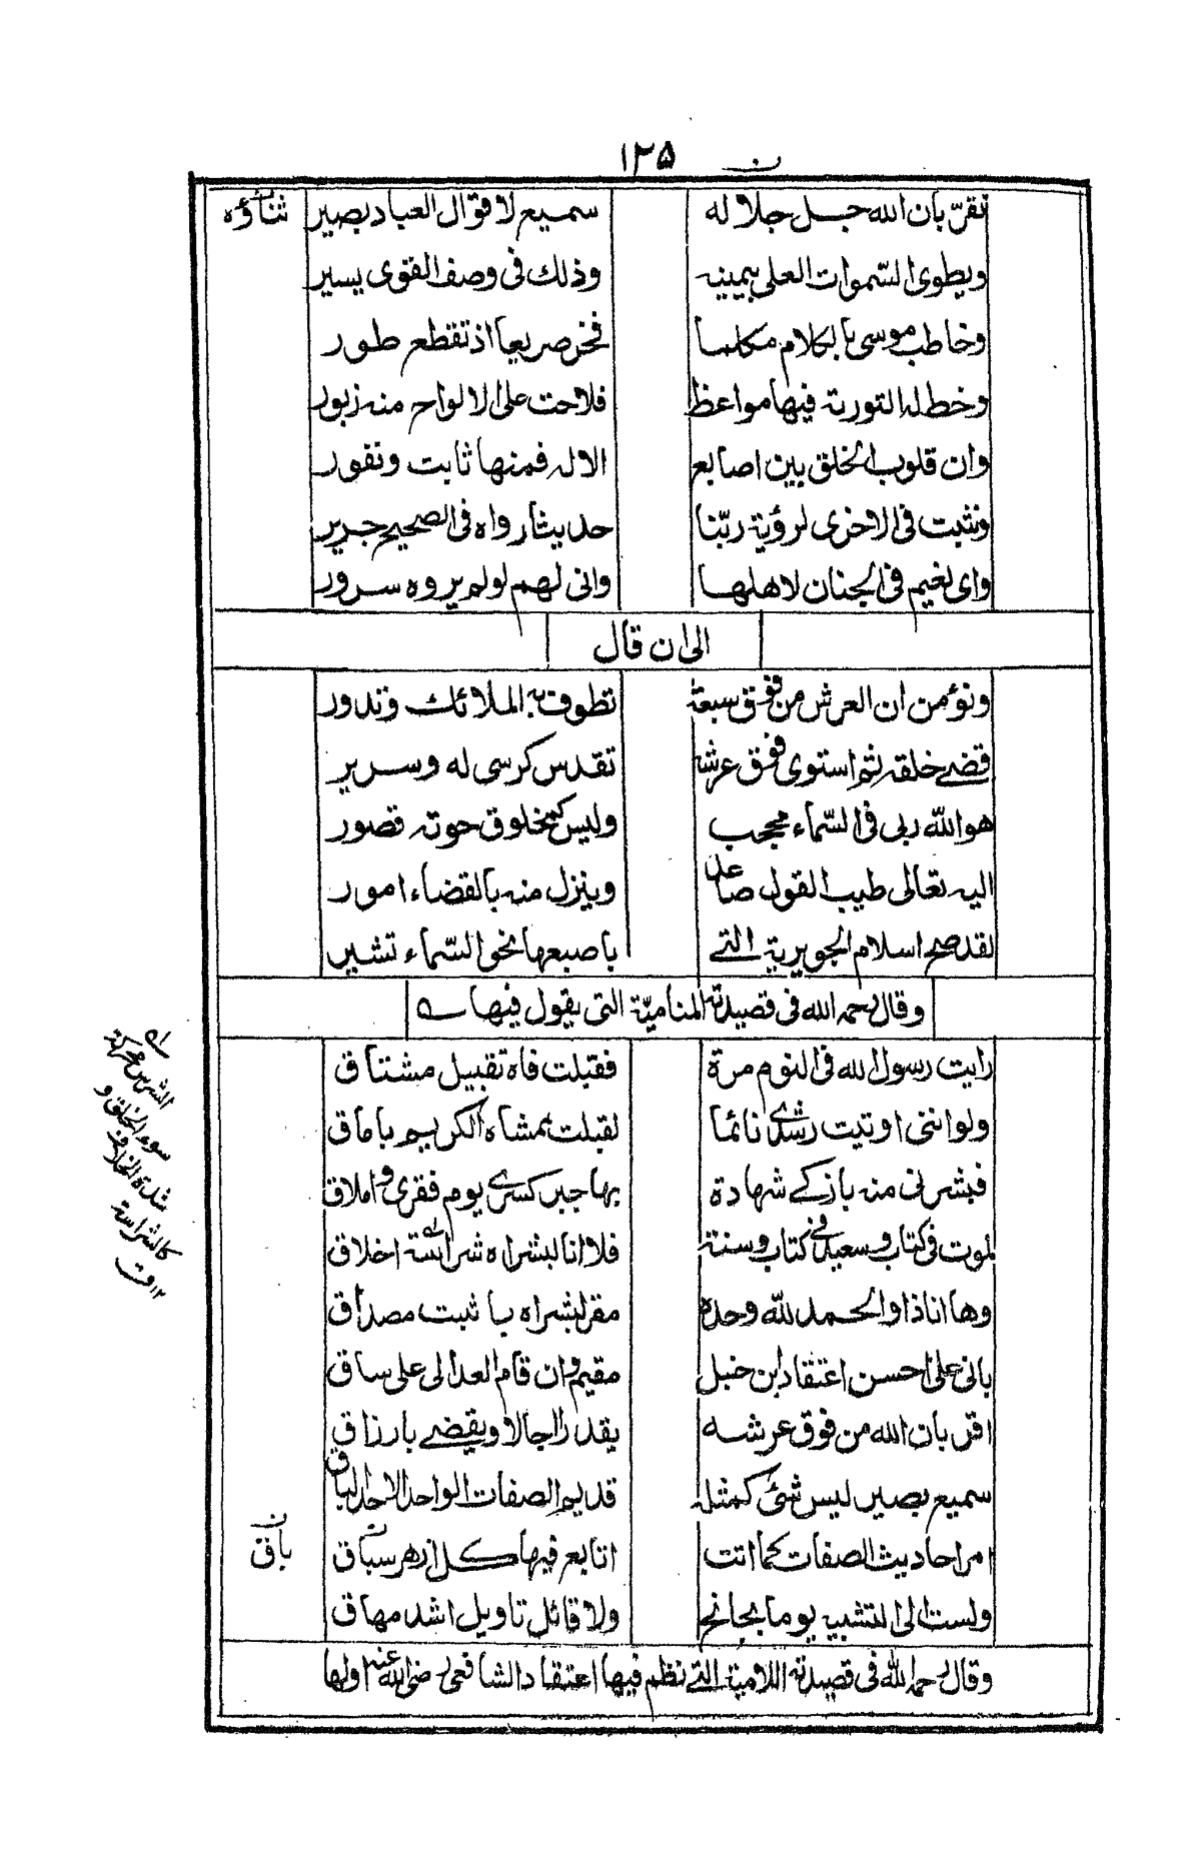 ١٢٥
ن
نقرّ بان الله جل جلاله سميع لاقوال العباد بصير ثناؤه
ويطوى السّموات العلى بيمينه وذلك فى وصف القوى يسير
وخاطب موسى بالكلام مكلما فخر صريعا اذ تقطع طور
وخط له التورىة فيها مواعظا فلاحت على الالواح منه زبور
وان قلوب الخلق بين اصابع الاله فمنها ثابت ونفور
ونثبت فى الاخرى لرؤية ربّنا حديثا رواه فى الصحيح جرير
واى نعيم فى الجنان لاهلها وانى لهم لو لم يروه سرور
الى ان قال
ونؤمن ان العرش من فوق سبعة تطوف به الملائك وتدور
قضے خلقه ثم استوى فوق عرشه تقدس كرسى له وسرير
هو الله ربى فى السّماء محجب وليس كمخلوق حوته قصور
اليه تعالى طيب القول صاعد وينزل منه بالقضاء امور
لقد صح اسلام الجويرية التے باصبعها نحو السّماء تشير
وقال رحمه الله فى قصيدته المناميّة التى يقول فيها
رايت رسول الله فى النوم مرة فقبلت فاه تقبيل مشتاق
ولو اننى اوتيت رشدى نائما لقبلت ممشاه الكريم باماق
فبشرنى منه بازكے شهادة بها جبر كسرى يوم فقرى واملاق
لموت فى كتاب وسعيد فى كتاب وسنة فلا انا لبشراه شراسة اخلاق
وها انا ذا والحمد لله وحده مقر لبشراه با ثبت مصداق
بانى على احسن اعتقاد ابن حنبل مقيم وان قام العدالى على ساق
اقر بان الله من فوق عرشه يقدر اجالا ويقضے بارزاق
سميع بصير ليس شئ كمثله قديم الصفات الواحد الاحد الباق
امر احاديث الصفات كما اتت اتابع فيها كل ازهر سباق
ن
باق
ولست الى التشبيه يوما بجانح ولا قائل تاويل اشد مهاق
وقال رحمه الله فى قصيدته اللامية التے نظم فيها اعتقاد الشافعى رضى الله عنه اولها
الشرس محركة
سوء الخلق و
شدة الخلاف
كالشراسة
١٢ ق